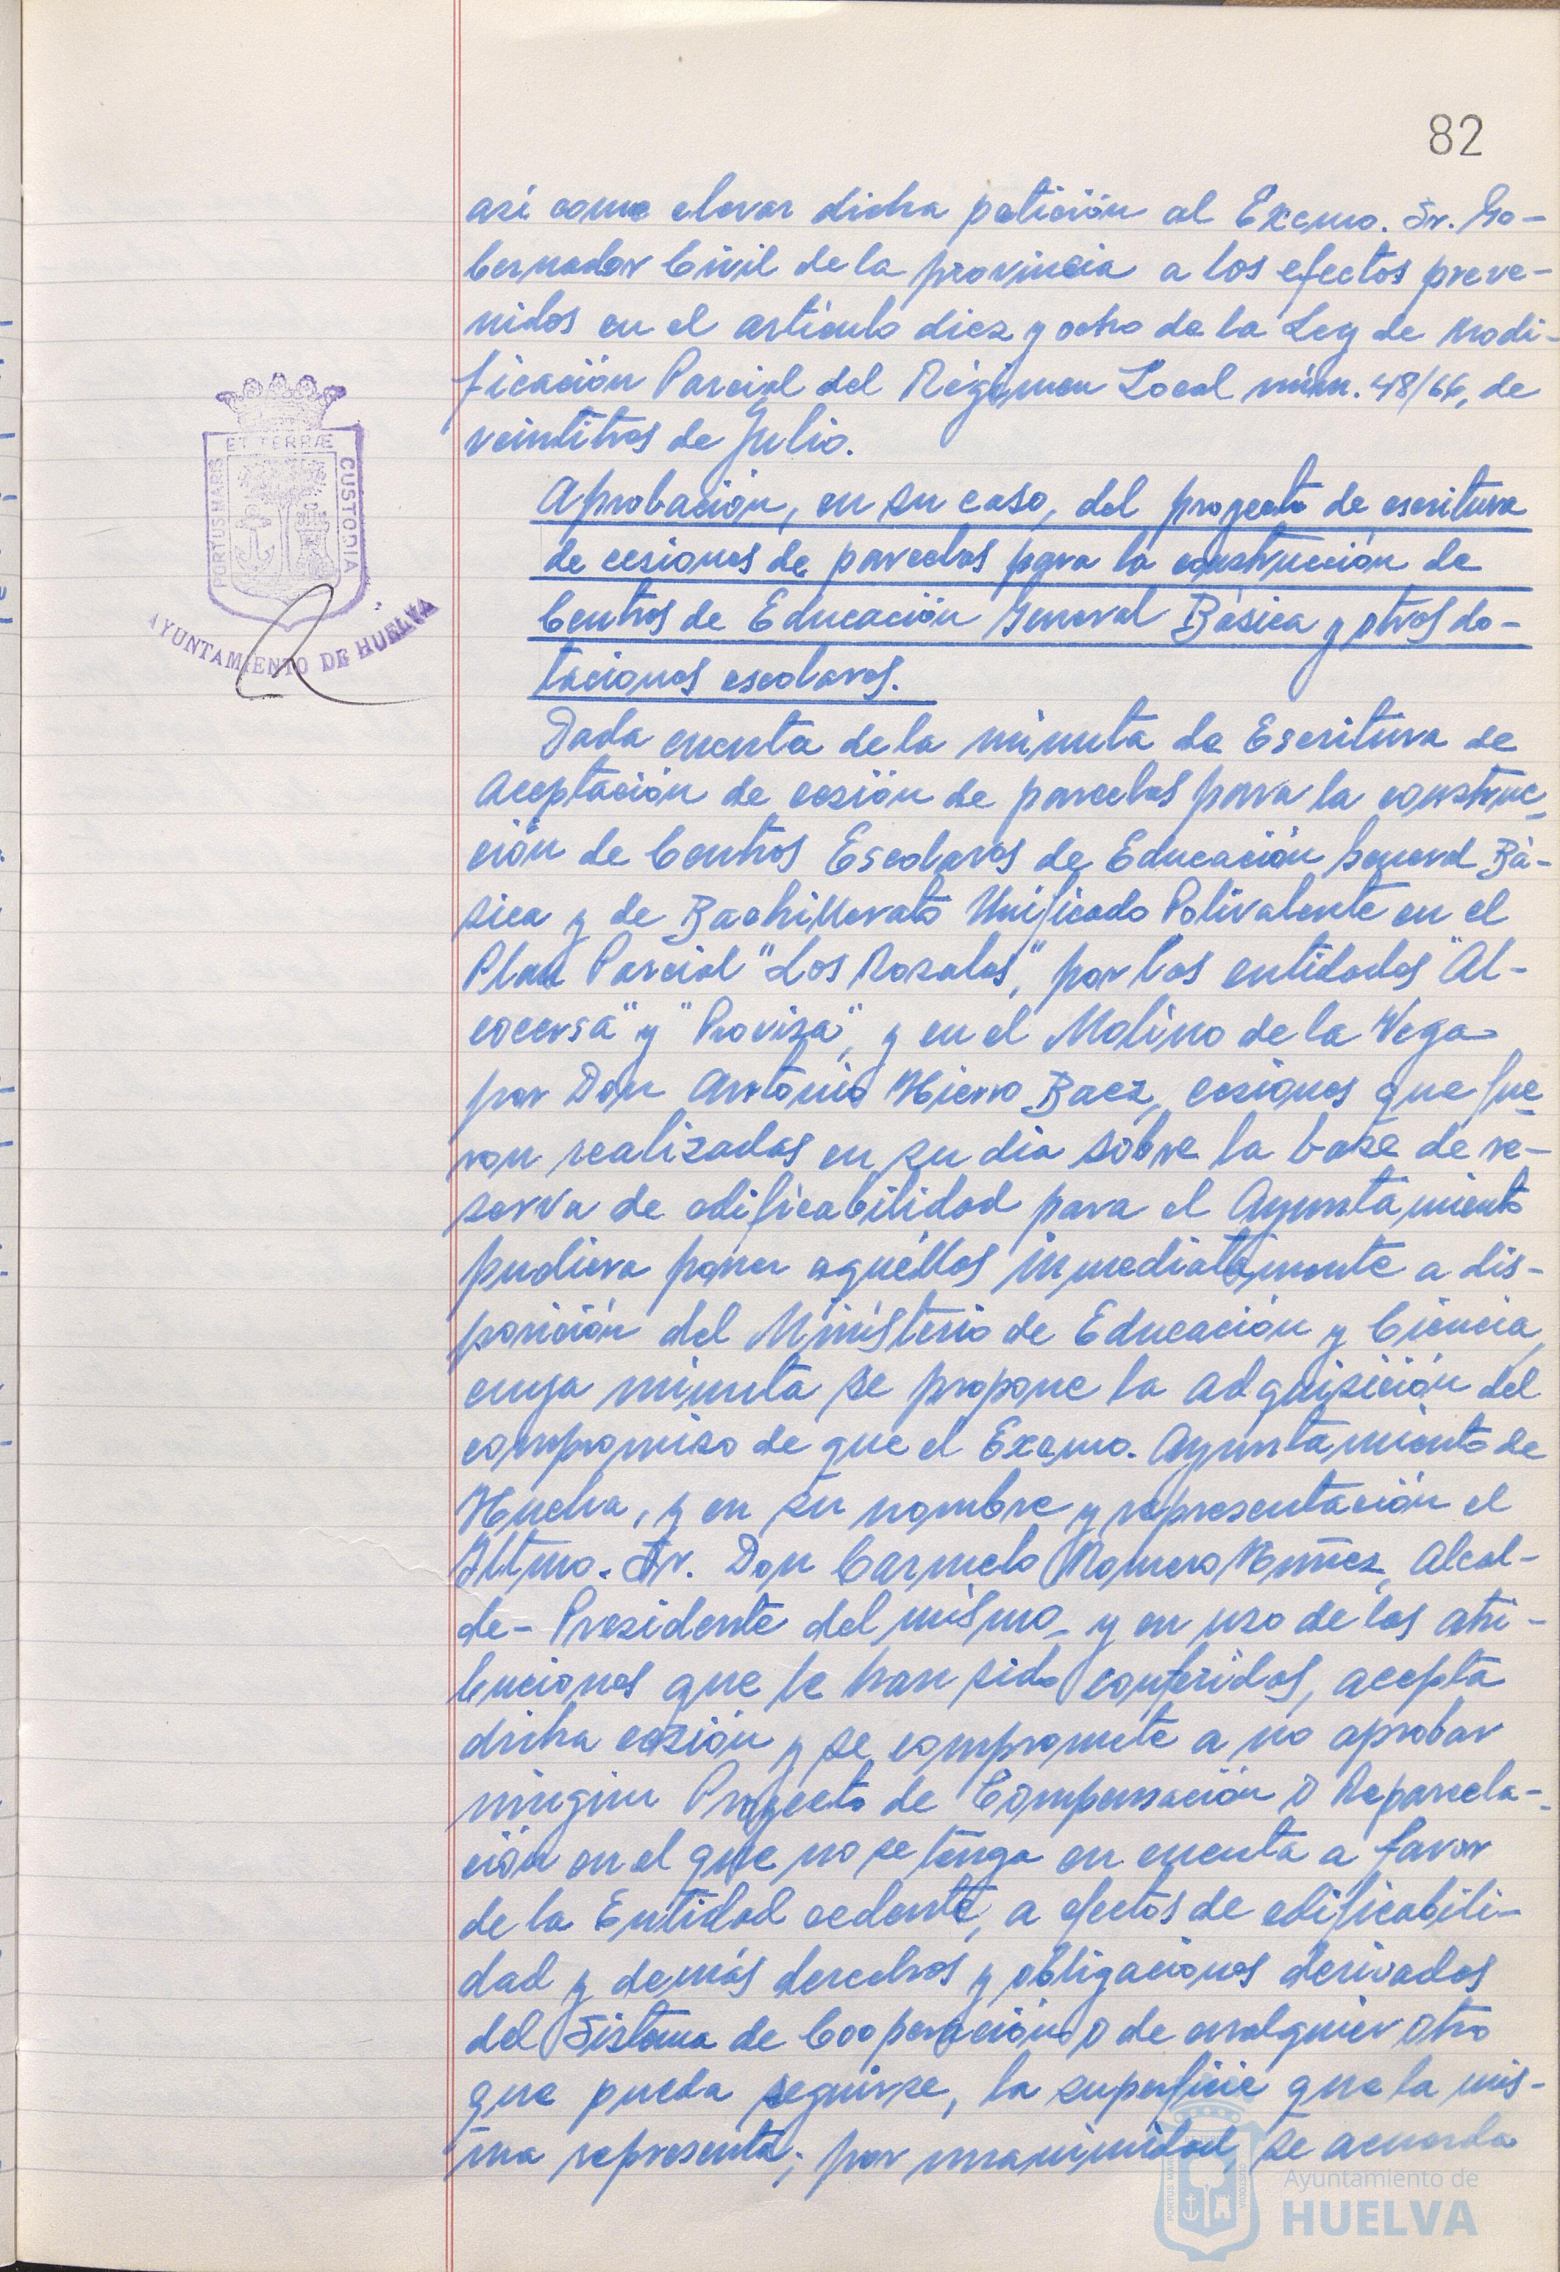 82
así como elevar dicha petición al Excmo. Sr. Go-
bernador Civil de la provincia a los efectos preve-
nidos en el artículo diez y ocho de la Ley de Modi-
ficación Parcial del Régimen Local núm. 48/66, de
veintitres de Julio.
Aprobación, en su caso, del proyecto de escritura
de cesiones de parcelas para la construcción de
Centros de Educación General Básica y otros do-
taciones escolares.
Dada cuenta de la minuta de Escritura de
Aceptación de cesión de parcelas para la construc-
ción de Centros Escolares de Educación General Bá-
sica y de Bachillerato Unificado Polivalente en el
Plan Parcial "Los Rosales", por las entidades "Al-
cocersa" y "Proviza", y en el Molino de la Vega
por Don Antonio Hierro Baez, cesiones que fue
ron realizadas en su día sobre la base de re-
serva de edificabilidad para el Ayuntamiento
pudiera poner aquéllos inmediatamente a dis-
posición del Ministerio de Educación y Ciencia,
cuya minuta se propone la adquisición del
compromiso de que el Excmo. Ayuntamiento de
Huelva, y en su nombre y representación el
Iltmo. Sr. Don Carmelo Romero Núñez, Alcal-
de-Presidente del mismo y en uso de las atri-
buciones que le han sido conferidas, acepta
dicha cesión y se compromete a no aprobar
ningún Proyecto de Compensación o Reparcela-
ción en el que no se tenga en cuenta a favor
de la Entidad cedente, a efectos de edificabili-
dad y demás derechos y obligaciones derivados
del Sistema de Cooperación o de cualquier otro
que pueda seguirse, la superficie que la mis-
ma representa; por unanimidad se acuerda
ET TERRÆ
PORTUS MARIS
CUSTODIA
AYUNTAMIENTO DE HUELVA
Ayuntamiento de
HUELVA